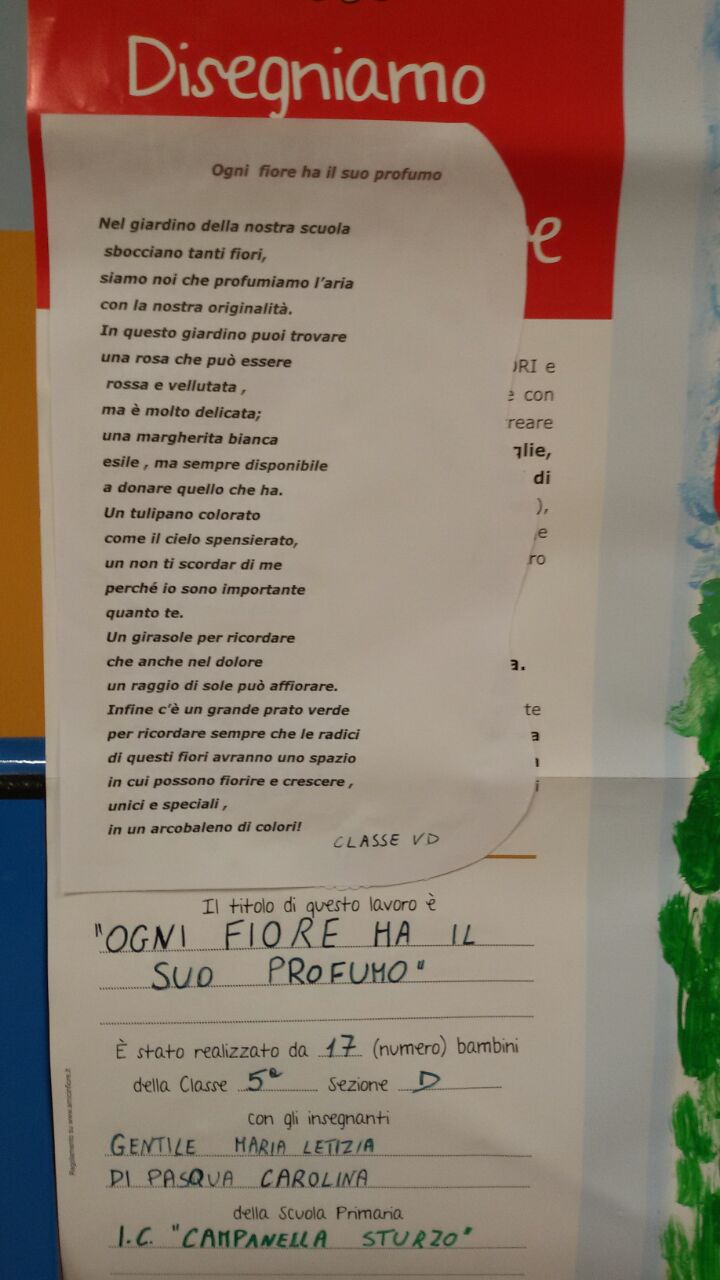 Disegniamo
Ogni fiore ha il suo profumo
Nel giardino della nostra scuola
sbocciano tanti fiori,
siamo noi che profumiamo l'aria
con la nostra originalità.
In questo giardino puoi trovare
una rosa che può essere
rossa e vellutata ,
ma è molto delicata;
una margherita bianca
esile , ma sempre disponibile
a donare quello che ha.
Un tulipano colorato
come il cielo spensierato,
un non ti scordar di me
perché io sono importante
quanto te.
Un girasole per ricordare
che anche nel dolore
un raggio di sole può affiorare.
Infine c'è un grande prato verde
per ricordare sempre che le radici
di questi fiori avranno uno spazio
in cui possono fiorire e crescere ,
unici e speciali ,
in un arcobaleno di colori!
CLASSE VD
e con
di
),
te
Il titolo di questo lavoro è
"OGNI FIORE HA IL
SUO PROFUMO"
È stato realizzato da 17 (numero) bambini
della Classe 5ª Sezione D
con gli insegnanti
GENTILE MARIA LETIZIA
DI PASQUA CAROLINA
della Scuola Primaria
I.C. "CAMPANELLA STURZO"
Regolamento su www.amiconfiore.it